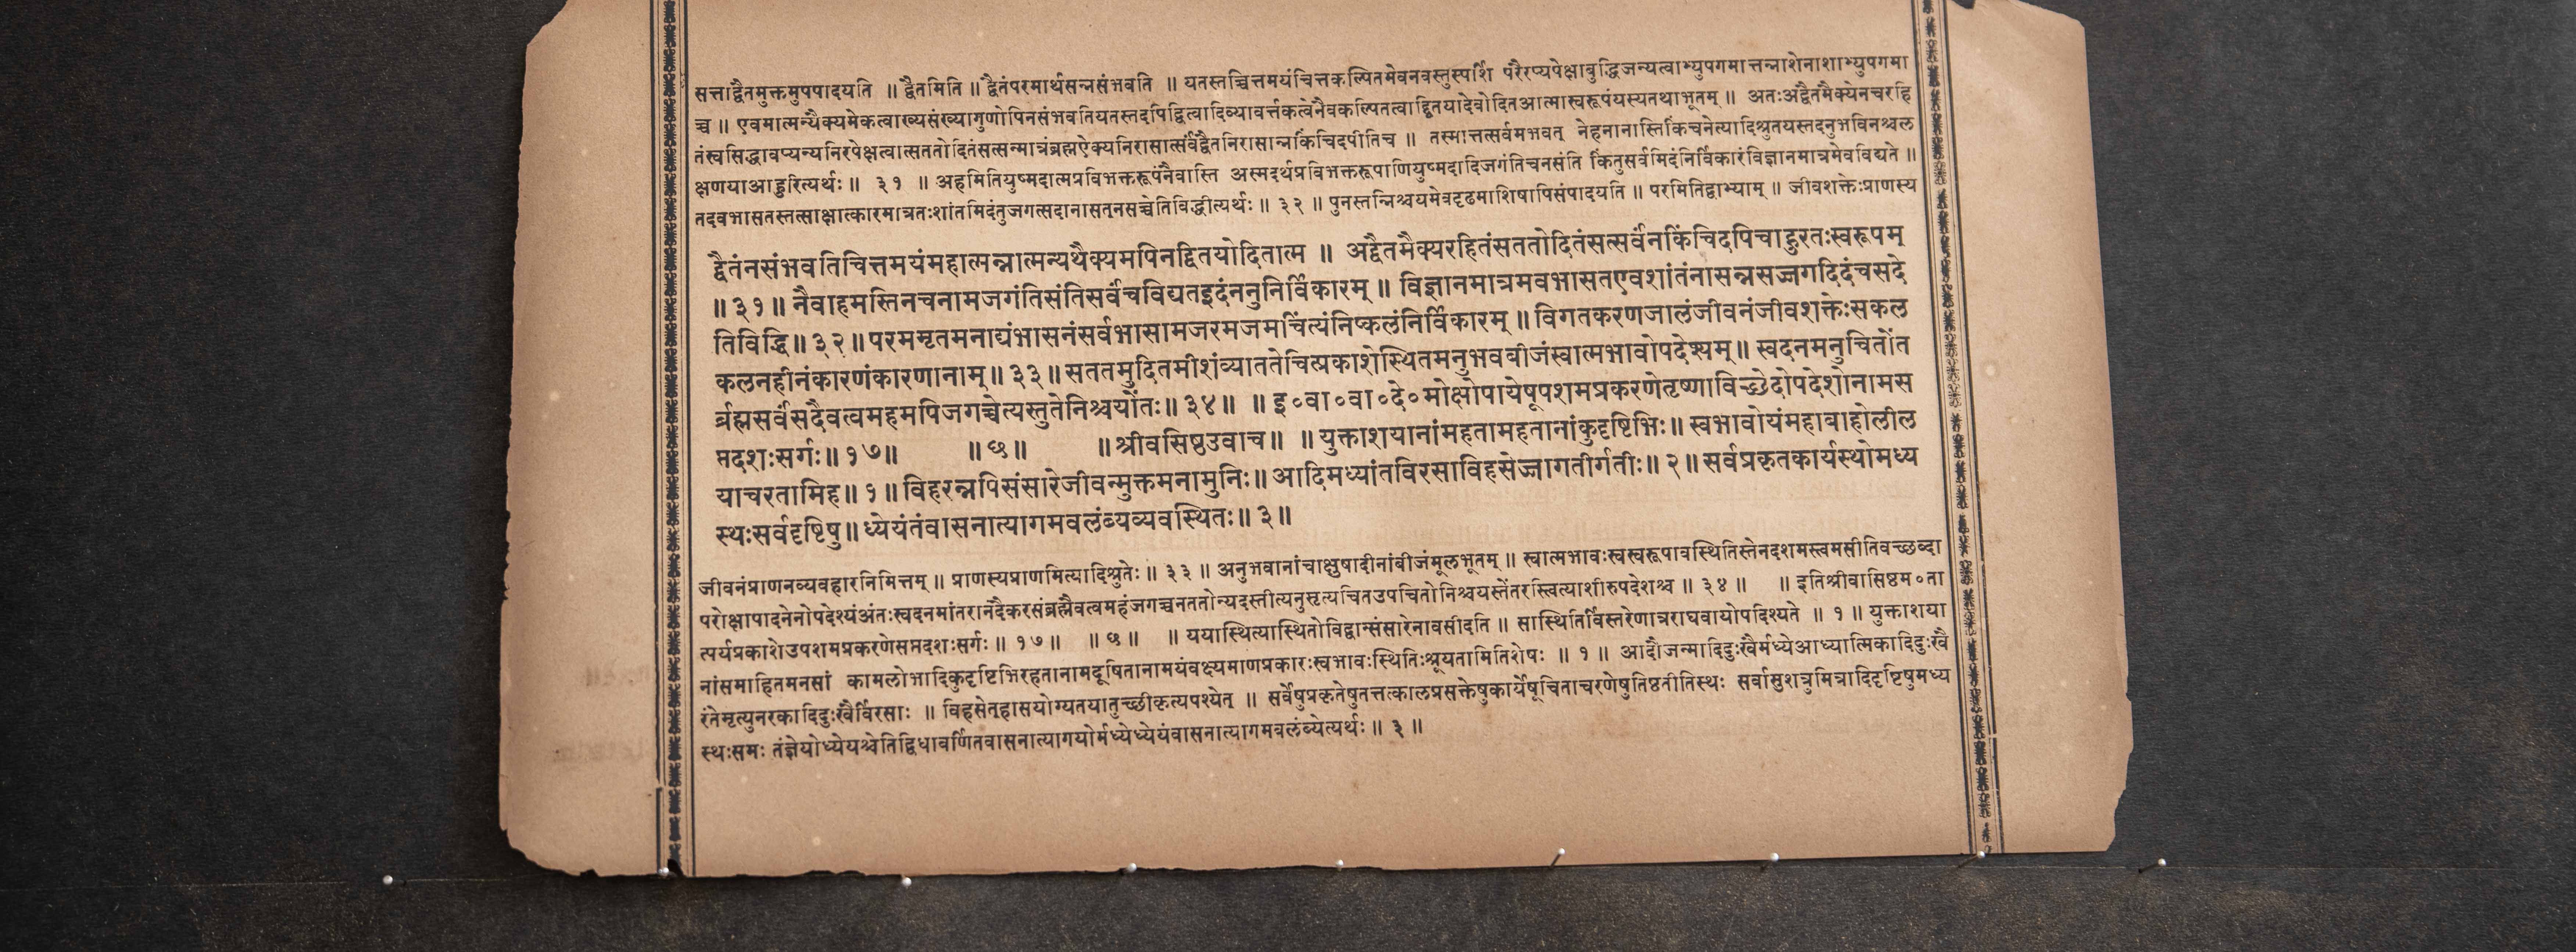 सत्ताद्वैतमुक्तमुपपादयति ॥ द्वैतमिति ॥ द्वैतंपरमार्थसन्नसंभवति ॥ यतस्तच्चित्तमयंचित्तकल्पितमेवनवस्तुस्पर्शि परैरप्यपेक्षाबुद्धिजन्यत्वाभ्युपगमात्तन्नाशेनाशाभ्युपगमा
च्च ॥ एवमात्मन्यैक्यमेकत्वाख्यसंख्यागुणोपिनसंभवतियतस्तदपिद्वित्वादिव्यावर्त्तकत्वेनैवकल्पितत्वाद्द्वितयादेवोदितआत्मास्वरूपंयस्यतथाभूतम् ॥ अतःअद्वैतमैक्येनचरहि
तंस्वसिद्धावप्यन्यनिरपेक्षत्वात्सततोदितंसत्सन्मात्रंब्रह्मऐक्यनिरासात्सर्वंद्वैतनिरासान्नकिंचिदपीतिच ॥ तस्मात्तत्सर्वमभवत् नेहनानास्तिकिंचनेत्यादिश्रुतयस्तदनुभविनश्चल
क्षणयाआहुरित्यर्थः ॥ ३१ ॥ अहमितियुष्मदात्मप्रविभक्तरूपंनैवास्ति अस्मदर्थप्रविभक्तरूपाणियुष्मदादिजगंतिचनसंति किंतुसर्वमिदंनिर्विकारंविज्ञानमात्रमेवविद्यते ॥
तदवभासतस्तत्साक्षात्कारमात्रतःशांतमिदंतुजगत्सदानासत्‌नसच्चेतिविद्धीत्यर्थः ॥ ३२ ॥ पुनस्तन्निश्चयमेवदृढमाशिषापिसंपादयति ॥ परमितिद्वाभ्याम् ॥ जीवशक्तेःप्राणस्य
द्वैतंनसंभवतिचित्तमयंमहात्मन्नात्मन्यथैक्यमपिनद्वितयोदितात्म ॥ अद्वैतमैक्यरहितंसततोदितंसत्सर्वंनकिंचिदपिचाहुरतःस्वरूपम्
॥ ३१ ॥ नैवाहमस्तिनचनामजगंतिसंतिसर्वंचविद्यतइदंननुनिर्विकारम् ॥ विज्ञानमात्रमवभासतएवशांतंनासन्नसज्जगदिदंचसदे
तिविद्धि ॥ ३२ ॥ परममृतमनाद्यंभासनंसर्वभासामजरमजमचिंत्यंनिष्कलंनिर्विकारम् ॥ विगतकरणजालंजीवनंजीवशक्तेःसकल
कलनहीनंकारणंकारणानाम् ॥ ३३ ॥ सततमुदितमीशंव्याततेचित्प्रकाशेस्थितमनुभवबीजंस्वात्मभावोपदेश्यम् ॥ स्वदनमनुचितोंत
र्ब्रह्मसर्वंसदैवत्वमहमपिजगच्चेत्यस्तुतेनिश्चयोंतः ॥ ३४ ॥ ॥ इ०वा०वा०दे०मोक्षोपायेषूपशमप्रकरणेतृष्णाविच्छेदोपदेशोनामस
प्तदशःसर्गः ॥ १७ ॥ ॥ छ ॥ ॥ श्रीवसिष्ठउवाच ॥ ॥ युक्ताशयानांमहतामहतानांकुदृष्टिभिः ॥ स्वभावोयंमहाबाहोलील
याचरतामिह ॥ १ ॥ विहरन्नपिसंसारेजीवन्मुक्तमनामुनिः ॥ आदिमध्यांतविरसाविहसेज्जागतीर्गतीः ॥ २ ॥ सर्वप्रकृतकार्यस्थोमध्य
स्थःसर्वदृष्टिषु ॥ ध्येयंतंवासनात्यागमवलंब्यव्यवस्थितः ॥ ३ ॥
जीवनंप्राणनव्यवहारनिमित्तम् ॥ प्राणस्यप्राणमित्यादिश्रुतेः ॥ ३३ ॥ अनुभवानांचाक्षुषादीनांबीजंमूलभूतम् ॥ स्वात्मभावःस्वस्वरूपावस्थितिस्तेनदशमस्त्वमसीतिवच्छब्दा
परोक्षापादनेनोपदेश्यंअंतःस्वदनमांतरानंदैकरसंब्रह्मैवत्वमहंजगच्चनततोन्यदस्तीत्यनुसृत्यचितउपचितोनिश्चयस्तेंतरस्त्वित्याशीरुपदेशश्च ॥ ३४ ॥ ॥ इतिश्रीवासिष्ठम०ता
त्पर्यप्रकाशेउपशमप्रकरणेसप्तदशःसर्गः ॥ १७ ॥ ॥ छ ॥ ॥ ययास्थित्यास्थितोविद्वान्संसारेनावसीदति ॥ सास्थितिर्विस्तरेणात्रराघवायोपदिश्यते ॥ १ ॥ युक्ताशया
नांसमाहितमनसां कामलोभादिकुदृष्टिभिरहतानामदूषितानामयंवक्ष्यमाणप्रकारःस्वभावःस्थितिःश्रूयतामितिशेषः ॥ १ ॥ आदौजन्मादिदुःखैर्मध्येआध्यात्मिकादिदुःखै
रंतेमृत्युनरकादिदुःखैर्विरसाः ॥ विहसेत्‌हासयोग्यतयातुच्छीकृत्यपश्येत् ॥ सर्वेषुप्रकृतेषुतत्तत्कालप्रसक्तेषुकार्येषूचिताचरणेषुतिष्ठतीतिस्थः सर्वासुशत्रुमित्रादिदृष्टिषुमध्य
स्थःसमः तंज्ञेयोध्येयश्चेतिद्विधावर्णितवासनात्यागयोर्मध्येध्येयंवासनात्यागमवलंब्येत्यर्थः ॥ ३ ॥